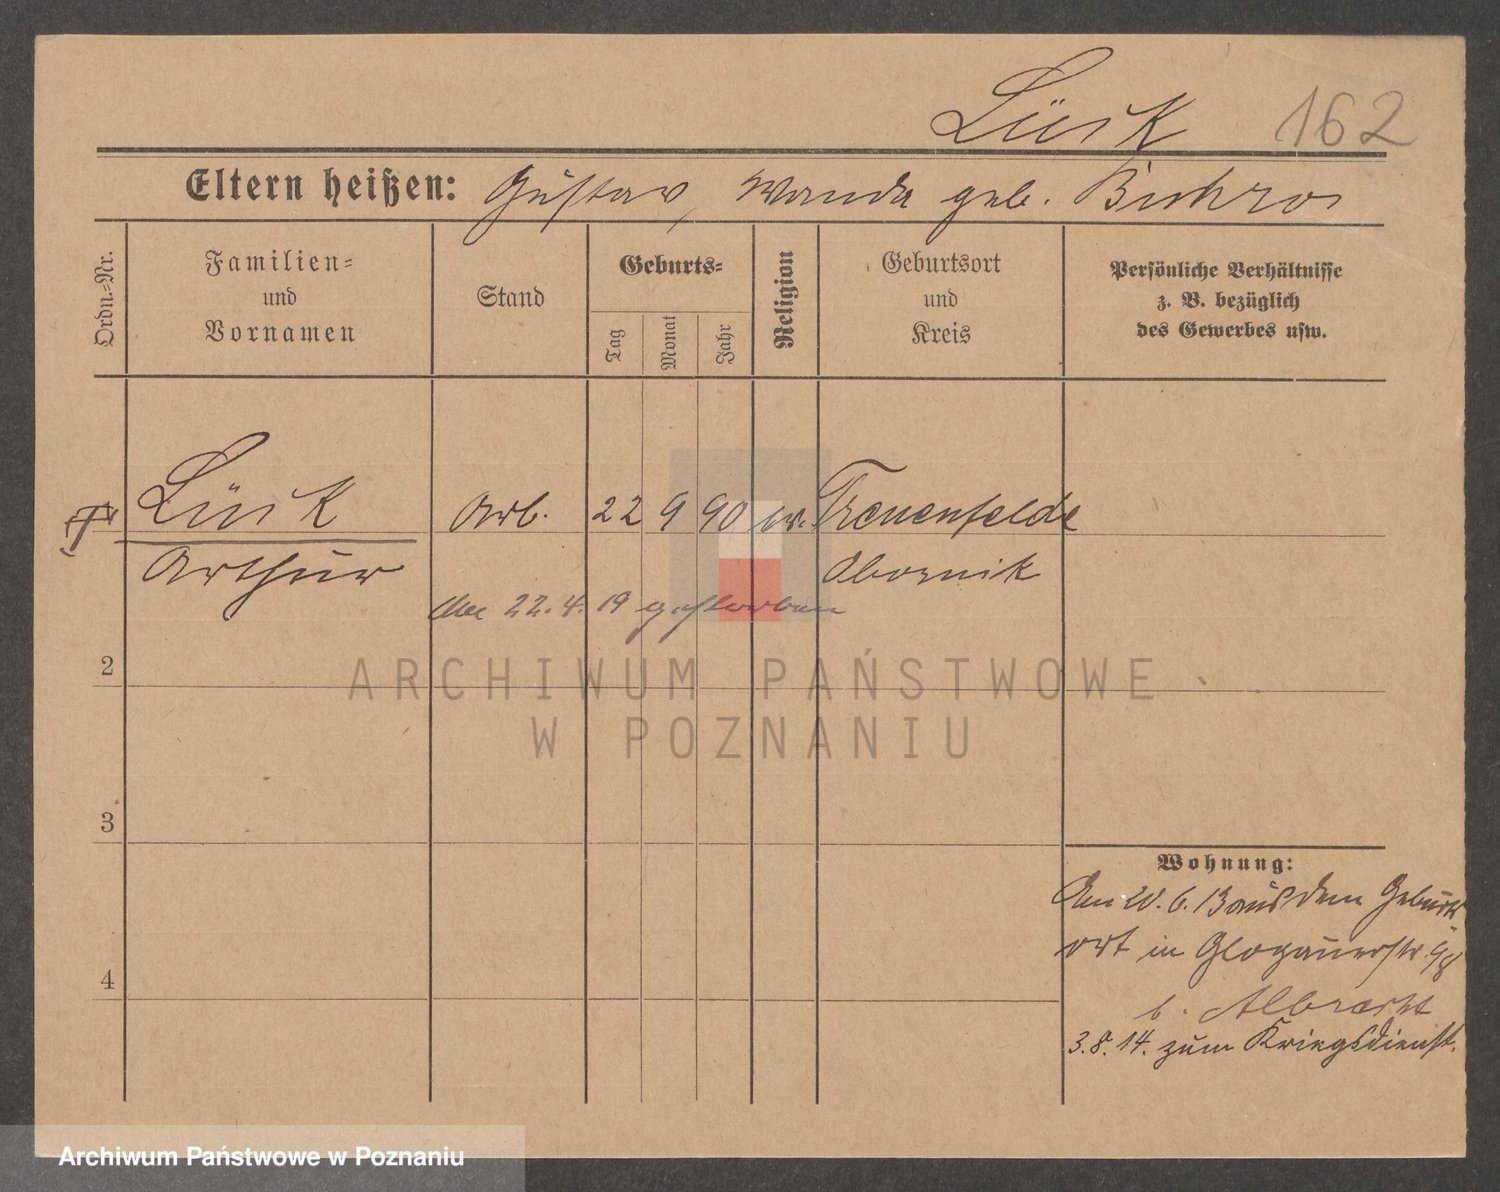 Lück 162
Eltern heißen: Gustav, Wanda geb.
Ordn.-Nr.
Familien- und Vornamen
Stand
Geburts-
Tag
Monat
Jahr
Religion
Geburtsort und Kreis
Persönliche Verhältnisse
z. B. bezüglich
des Gewerbes usw.
Lück Arb. 22 9 90 ev. Treuenfelde
Arthur Obornik
Am 22.4.19 gestorben
2
3
4
Wohnung:
Am 20.6.13 aus dem Geburts
ort in Glogauerstr. 98
b. Albrecht
3.8.14. zum Kriegsdienst.
ARCHIWUM PAŃSTWOWE
W POZNANIU
Archiwum Państwowe w Poznaniu